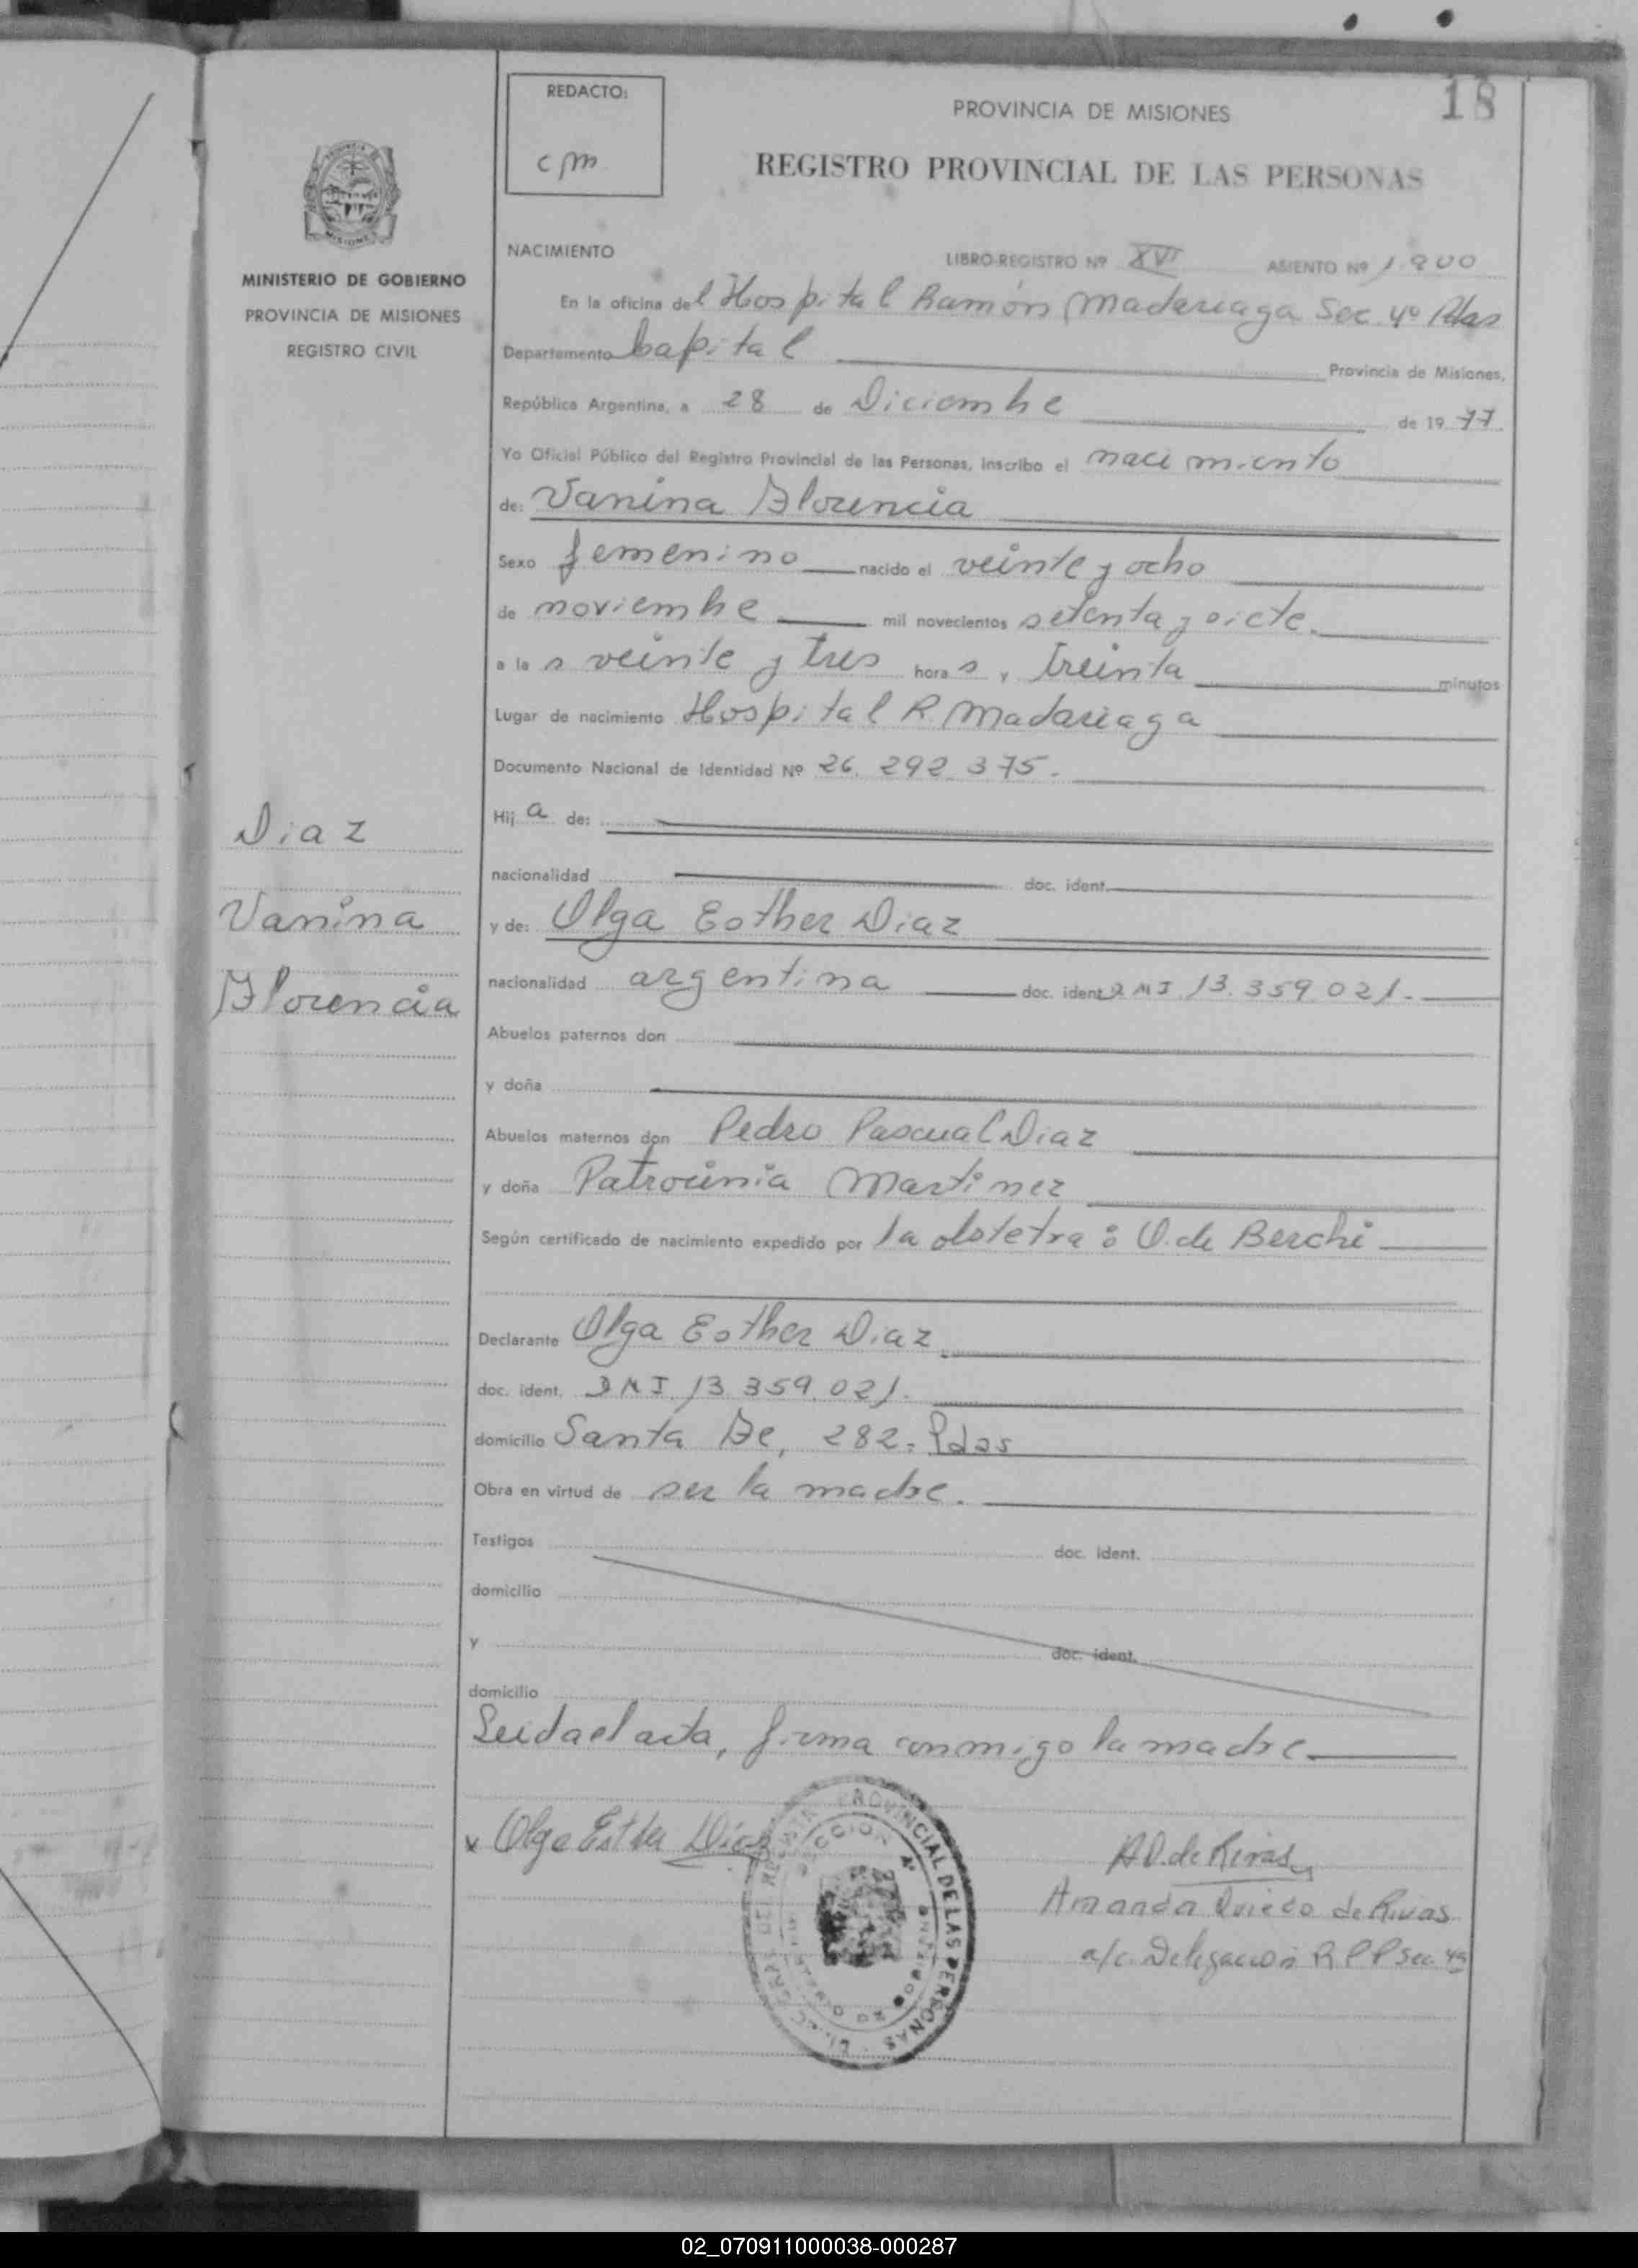 18
REDACTO:
cpm
PROVINCIA DE MISIONES
REGISTRO PROVINCIAL DE LAS PERSONAS
MINISTERIO DE GOBIERNO
PROVINCIA DE MISIONES
REGISTRO CIVIL
NACIMIENTO
LIBRO-REGISTRO Nº XVI ASIENTO Nº 1.900
En la oficina del Hospital Ramón Madariaga Sec. 4º Pdas
Departamento Capital Provincia de Misiones,
República Argentina, a 28 de Diciembre de 1977.
Yo Oficial Público del Registro Provincial de las Personas, inscribo el nacimiento
de: Vanina Florencia
Sexo femenino nacido el veinte y ocho
de noviembre mil novecientos setenta y siete.
a las veinte y tres horas y treinta minutos
Lugar de nacimiento Hospital R. Madariaga
Documento Nacional de Identidad Nº 26.292.375.
Hija de:
nacionalidad doc. ident.
y de: Olga Esther Diaz
nacionalidad argentina doc. ident DNI 13.359.021.
Abuelos paternos don
y doña
Abuelos maternos don Pedro Pascual Diaz
y doña Patrocinia Martinez
Según certificado de nacimiento expedido por la obstetra: O. de Berchi
Declarante Olga Esther Diaz
doc. ident. DNI 13.359.021.
domicilio Santa Fe, 282. Pdas
Obra en virtud de ser la madre.
Testigos doc. ident.
domicilio
y doc. ident.
domicilio
Leida el acta, firma conmigo la madre.
Diaz
Vanina
Florencia
x Olga Esther Díaz
PROVINCIAL DE LAS PERSONAS
SECCION 4ª
A O. de Rivas
Amanda Oviedo de Rivas
a/c. Delegación R P P Sec. 4ª
02_070911000038-000287